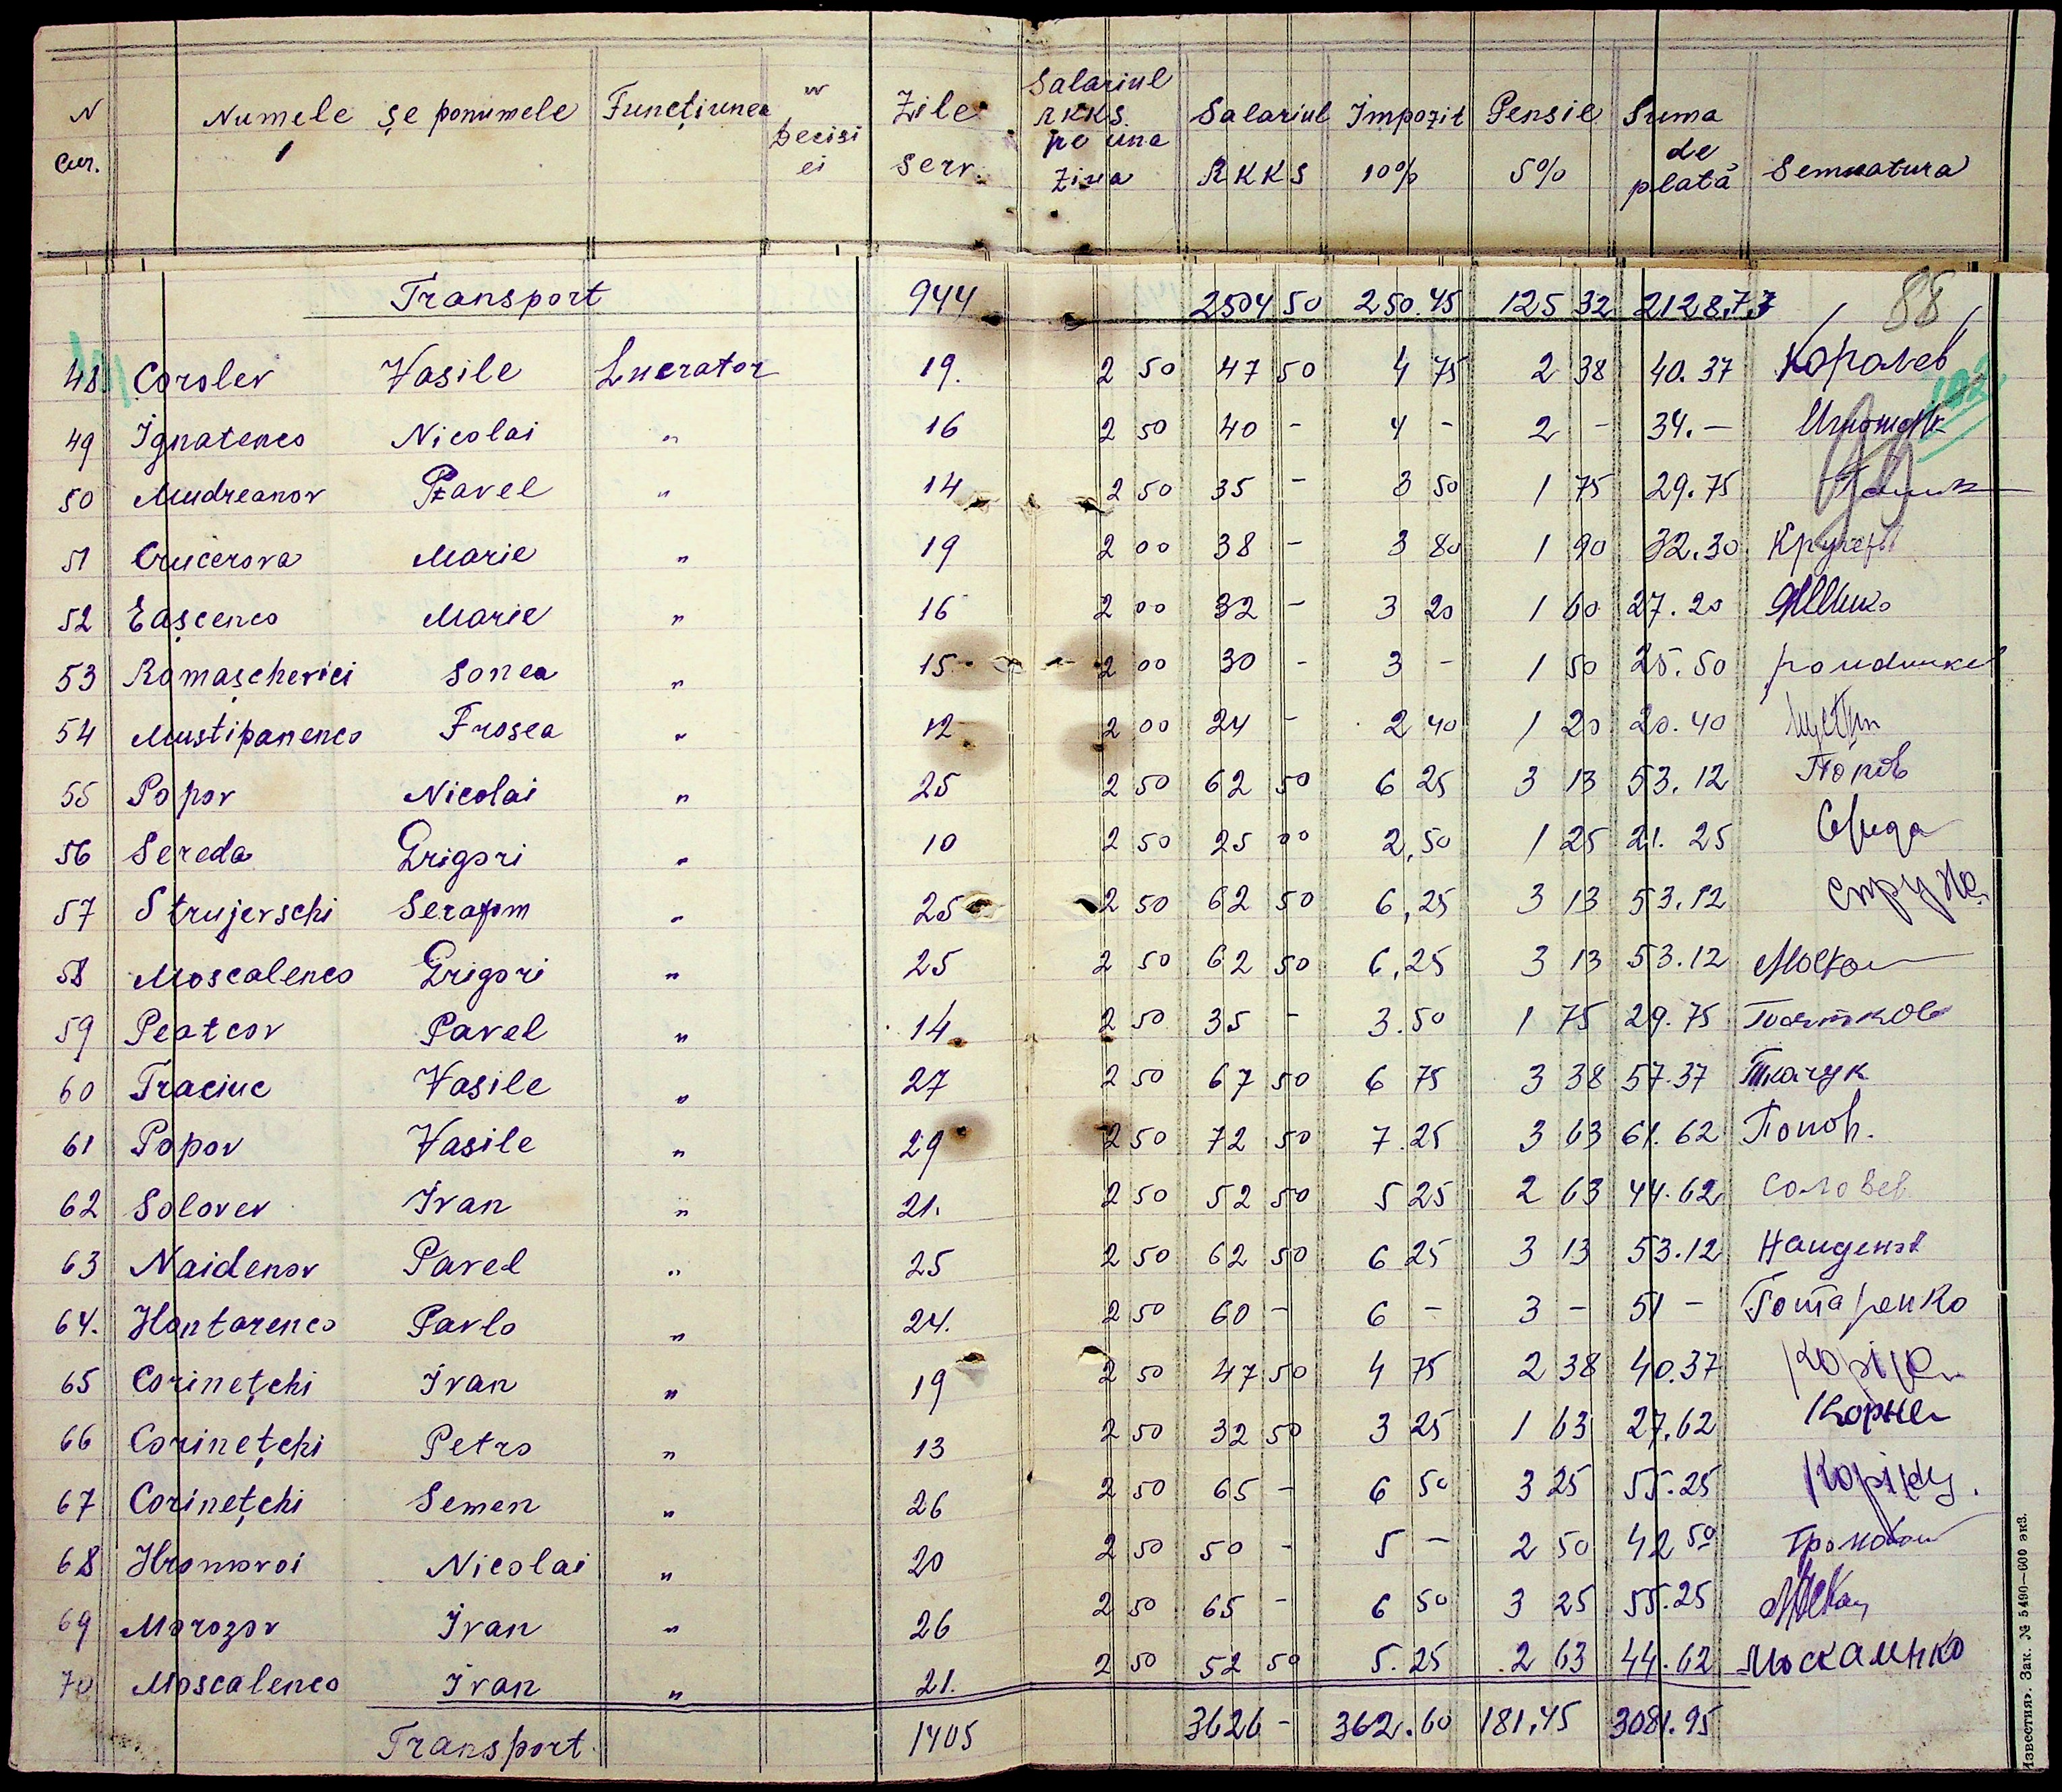 N Cur. Numele şe ponumele Funcţiunea N Decisi ei Zile serv. Salariul RKKS. pe una Ziua Salariul RKKS Impozit 10% Pensie 5% Suma de plată Semnatura
Transport 944 2504 50 250.45 125 32 2128,73
88
48 Corolev Vasile Lucrator 19. 2 50 47 50 4 75 2 38 40.37 Королев
49 Ignatenco Nicolai " 16 2 50 40 - 4 - 2 - 34.-
50 Mudreanov Pavel " 14 2 50 35 - 3 50 1 75 29.75
51 Crucerova Marie " 19 2 00 38 - 3 80 1 90 32.30
52 Eaşcenco Marie " 16 2 00 32 - 3 20 1 60 27.20
53 Romaşchevici Sonea " 15 2 00 30 - 3 - 1 50 25.50
54 Mustipanenco Frosea " 12 2 00 24 - 2 40 1 20 20.40
55 Popov Nicolai " 25 2 50 62 50 6 25 3 13 53.12 Попов
56 Sereda Grigori " 10 2 50 25 00 2,50 1 25 21.25
57 Strujevschi Serafim " 25 2 50 62 50 6,25 3 13 53.12 Струже
58 Moscalenco Grigori " 25 2 50 62 50 6,25 3 13 53.12
59 Peatcov Pavel " 14 2 50 35 - 3.50 1 75 29.75 Пятков
60 Traciuc Vasile " 27 2 50 67 50 6 75 3 38 57.37 Ткачук
61 Popov Vasile " 29 2 50 72 50 7.25 3 63 61.62 Попов.
62 Solovev Ivan " 21. 2 50 52 50 5 25 2 63 44.62 Соловев
63 Naidenov Pavel " 25 2 50 62 50 6 25 3 13 53.12 Найденов
64. Hontarenco Pavlo " 24. 2 50 60 - 6 - 3 - 51 - Гонтаренко
65 Corineţchi Ivan " 19 2 50 47 50 4 75 2 38 40.37
66 Corineţchi Petro " 13 2 50 32 50 3 25 1 63 27.62
67 Corineţchi Semen " 26 2 50 65 - 6 50 3 25 55.25
68 Hromovoi Nicolai " 20 2 50 50 - 5 - 2 50 42 50
69 Morozov Ivan " 26 2 50 65 - 6 50 3 25 55.25
70 Moscalenco Ivan " 21. 2 50 52 50 5.25 2 63 44.62 Москаленко
Transport 1405 3626 - 362.60 181,45 3081.95
Известия». Зак. № 5490—600 экз.